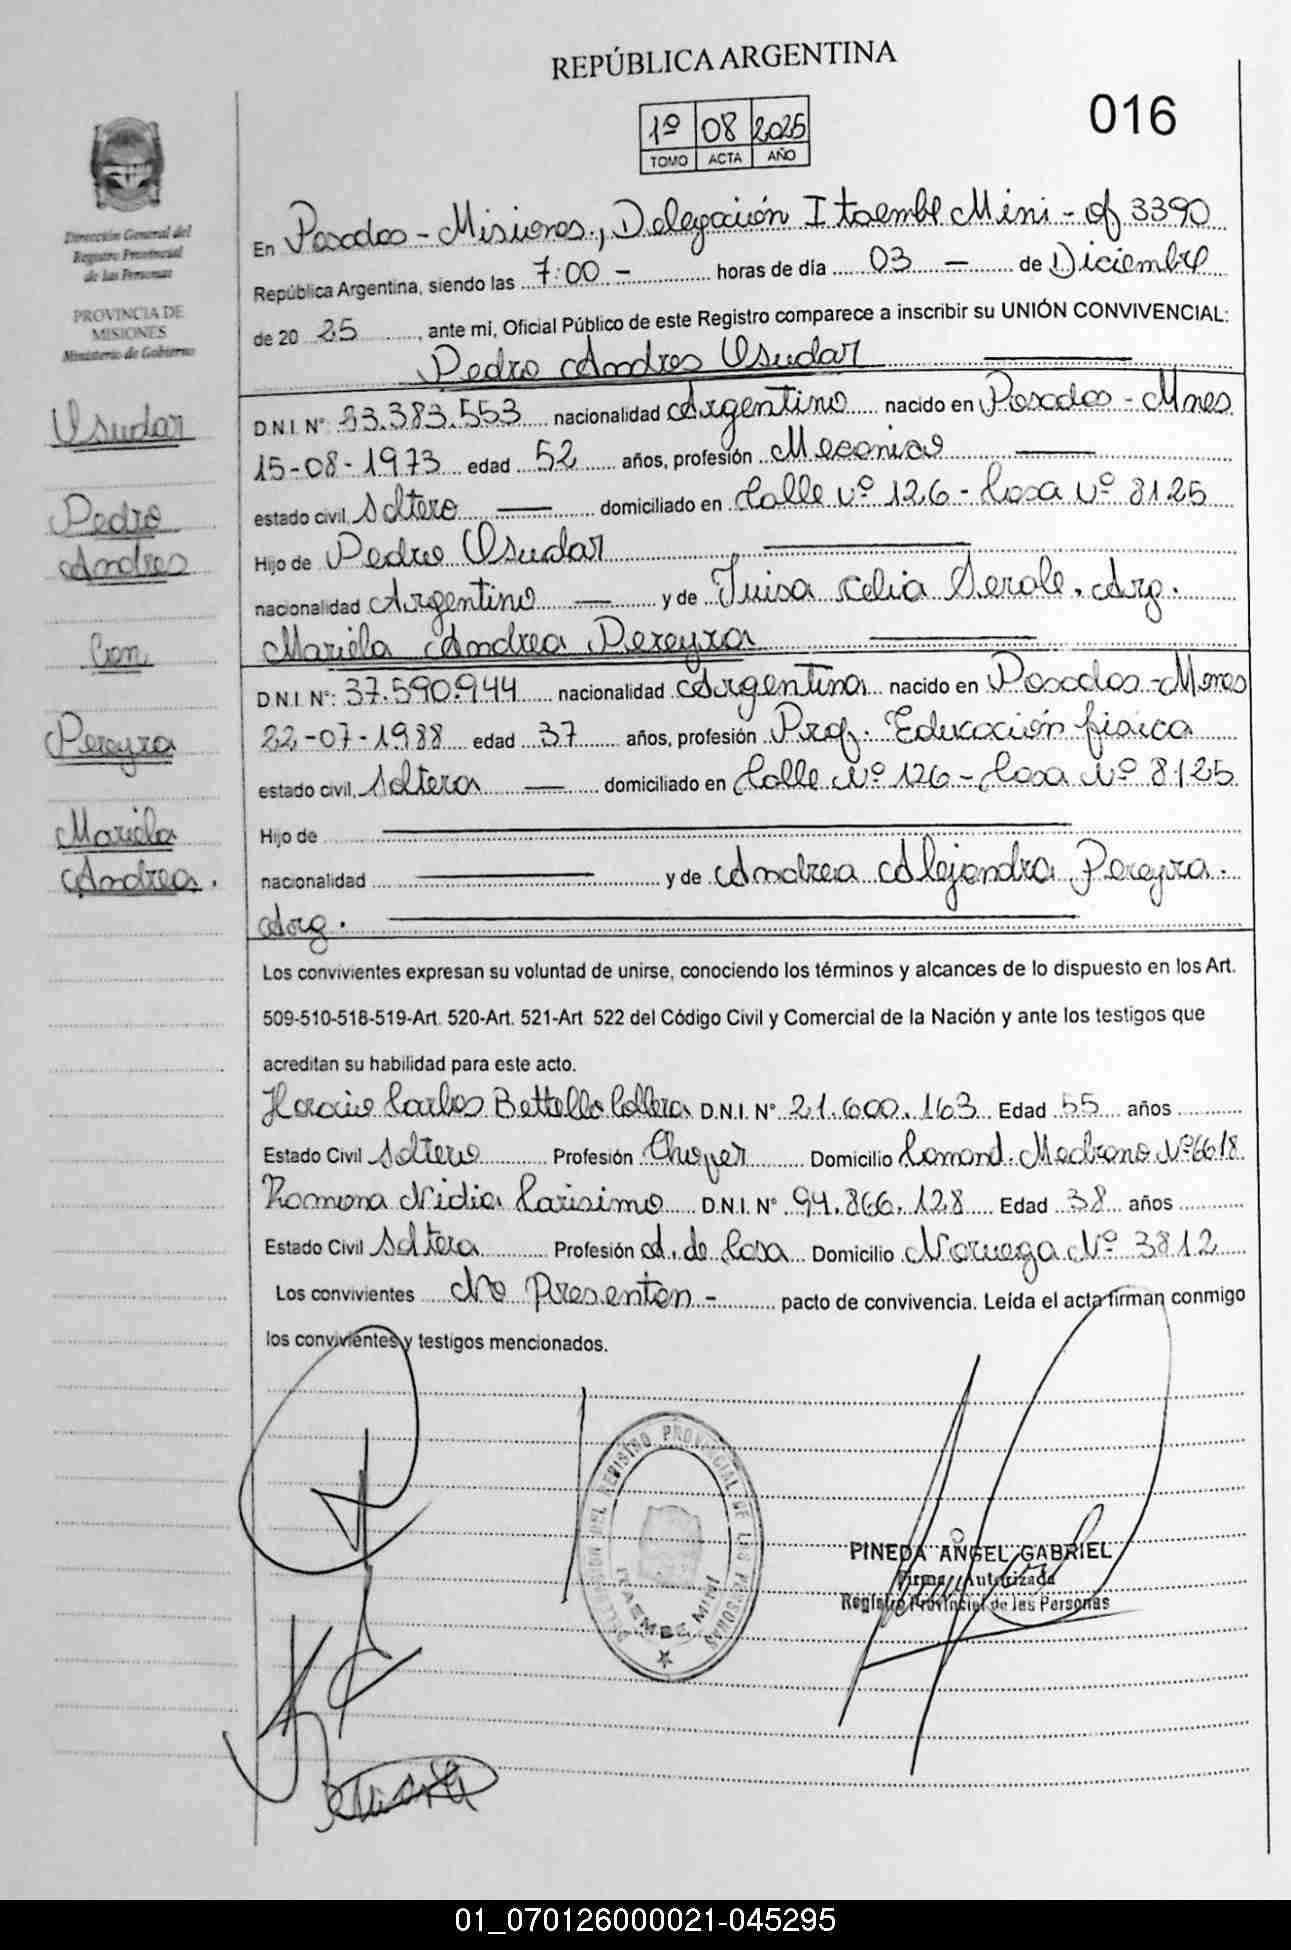 REPÚBLICA ARGENTINA
016
1º 08 2025
TOMO ACTA AÑO
Dirección General del
Registro Provincial
de las Personas
PROVINCIA DE
MISIONES
Ministerio de Gobierno
En Posadas - Misiones., Delegación Itaembe Mini - of 3390
República Argentina, siendo las 7:00 - horas de día 03 - de Diciembre
de 20 25, ante mi, Oficial Público de este Registro comparece a inscribir su UNIÓN CONVIVENCIAL:
Pedro Andres Usudar
Usudar
Pedro
Andres
Con
Pereyra
Mariela
Andrea.
D.N.I. Nº: 23.383.553 nacionalidad Argentino nacido en Posadas - Mnes
15-08-1973 edad 52 años, profesión Mecanico
estado civil, Soltero domiciliado en Calle Nº 126 - Casa Nº 8125
Hijo de Pedro Usudar
nacionalidad Argentino y de Luisa Celia . Arg.
Mariela Andrea Pereyra
D.N.I. Nº: 37.590.944 nacionalidad Argentina nacido en Posadas - Mnes
22-07-1988 edad 37 años, profesión Prof. Educación fisica
estado civil, Soltera domiciliado en Calle Nº 126 - Casa Nº 8125
Hijo de
nacionalidad y de Andrea Alejandra Pereyra.
Arg.
Los convivientes expresan su voluntad de unirse, conociendo los términos y alcances de lo dispuesto en los Art.
509-510-518-519-Art. 520-Art. 521-Art. 522 del Código Civil y Comercial de la Nación y ante los testigos que
acreditan su habilidad para este acto.
Horacio Carlos D.N.I. Nº 21.600.163 Edad 55 años
Estado Civil Soltero Profesión Chofer Domicilio Comand. Medrano Nº 6618
Ramona Nidia Carisimo D.N.I. Nº 94.866.128 Edad 38 años
Estado Civil Soltera Profesión A. de Casa Domicilio Noruega Nº 3812
Los convivientes No Presentan - pacto de convivencia. Leída el acta firman conmigo
los convivientes y testigos mencionados.
DELEGACION DEL REGISTRO PROVINCIAL DE LAS PERSONAS
ITAEMBE MINI
PINEDA ANGEL GABRIEL
Firma Autorizada
Registro Provincial de las Personas
01_070126000021-045295